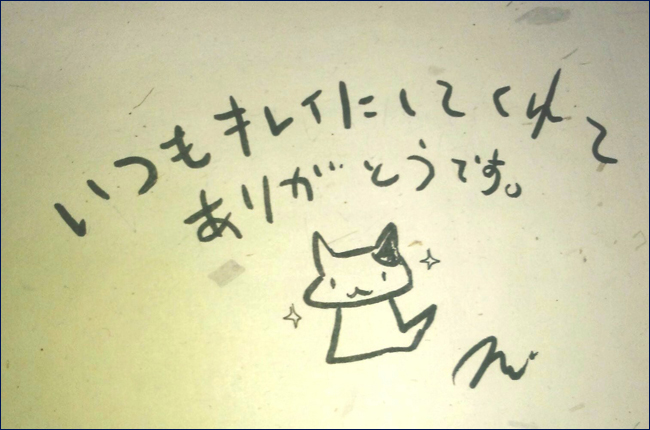 いつもキレイにしてくれて
ありがとうです。